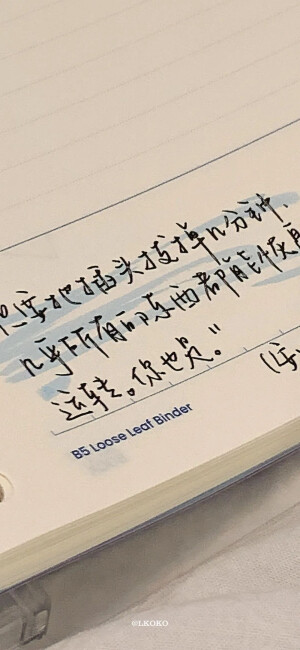 要把插头拔掉几分钟,
几乎所有的东西都能恢
运转。你也是。"
B5 Loose Leaf Binder
@LKOKO